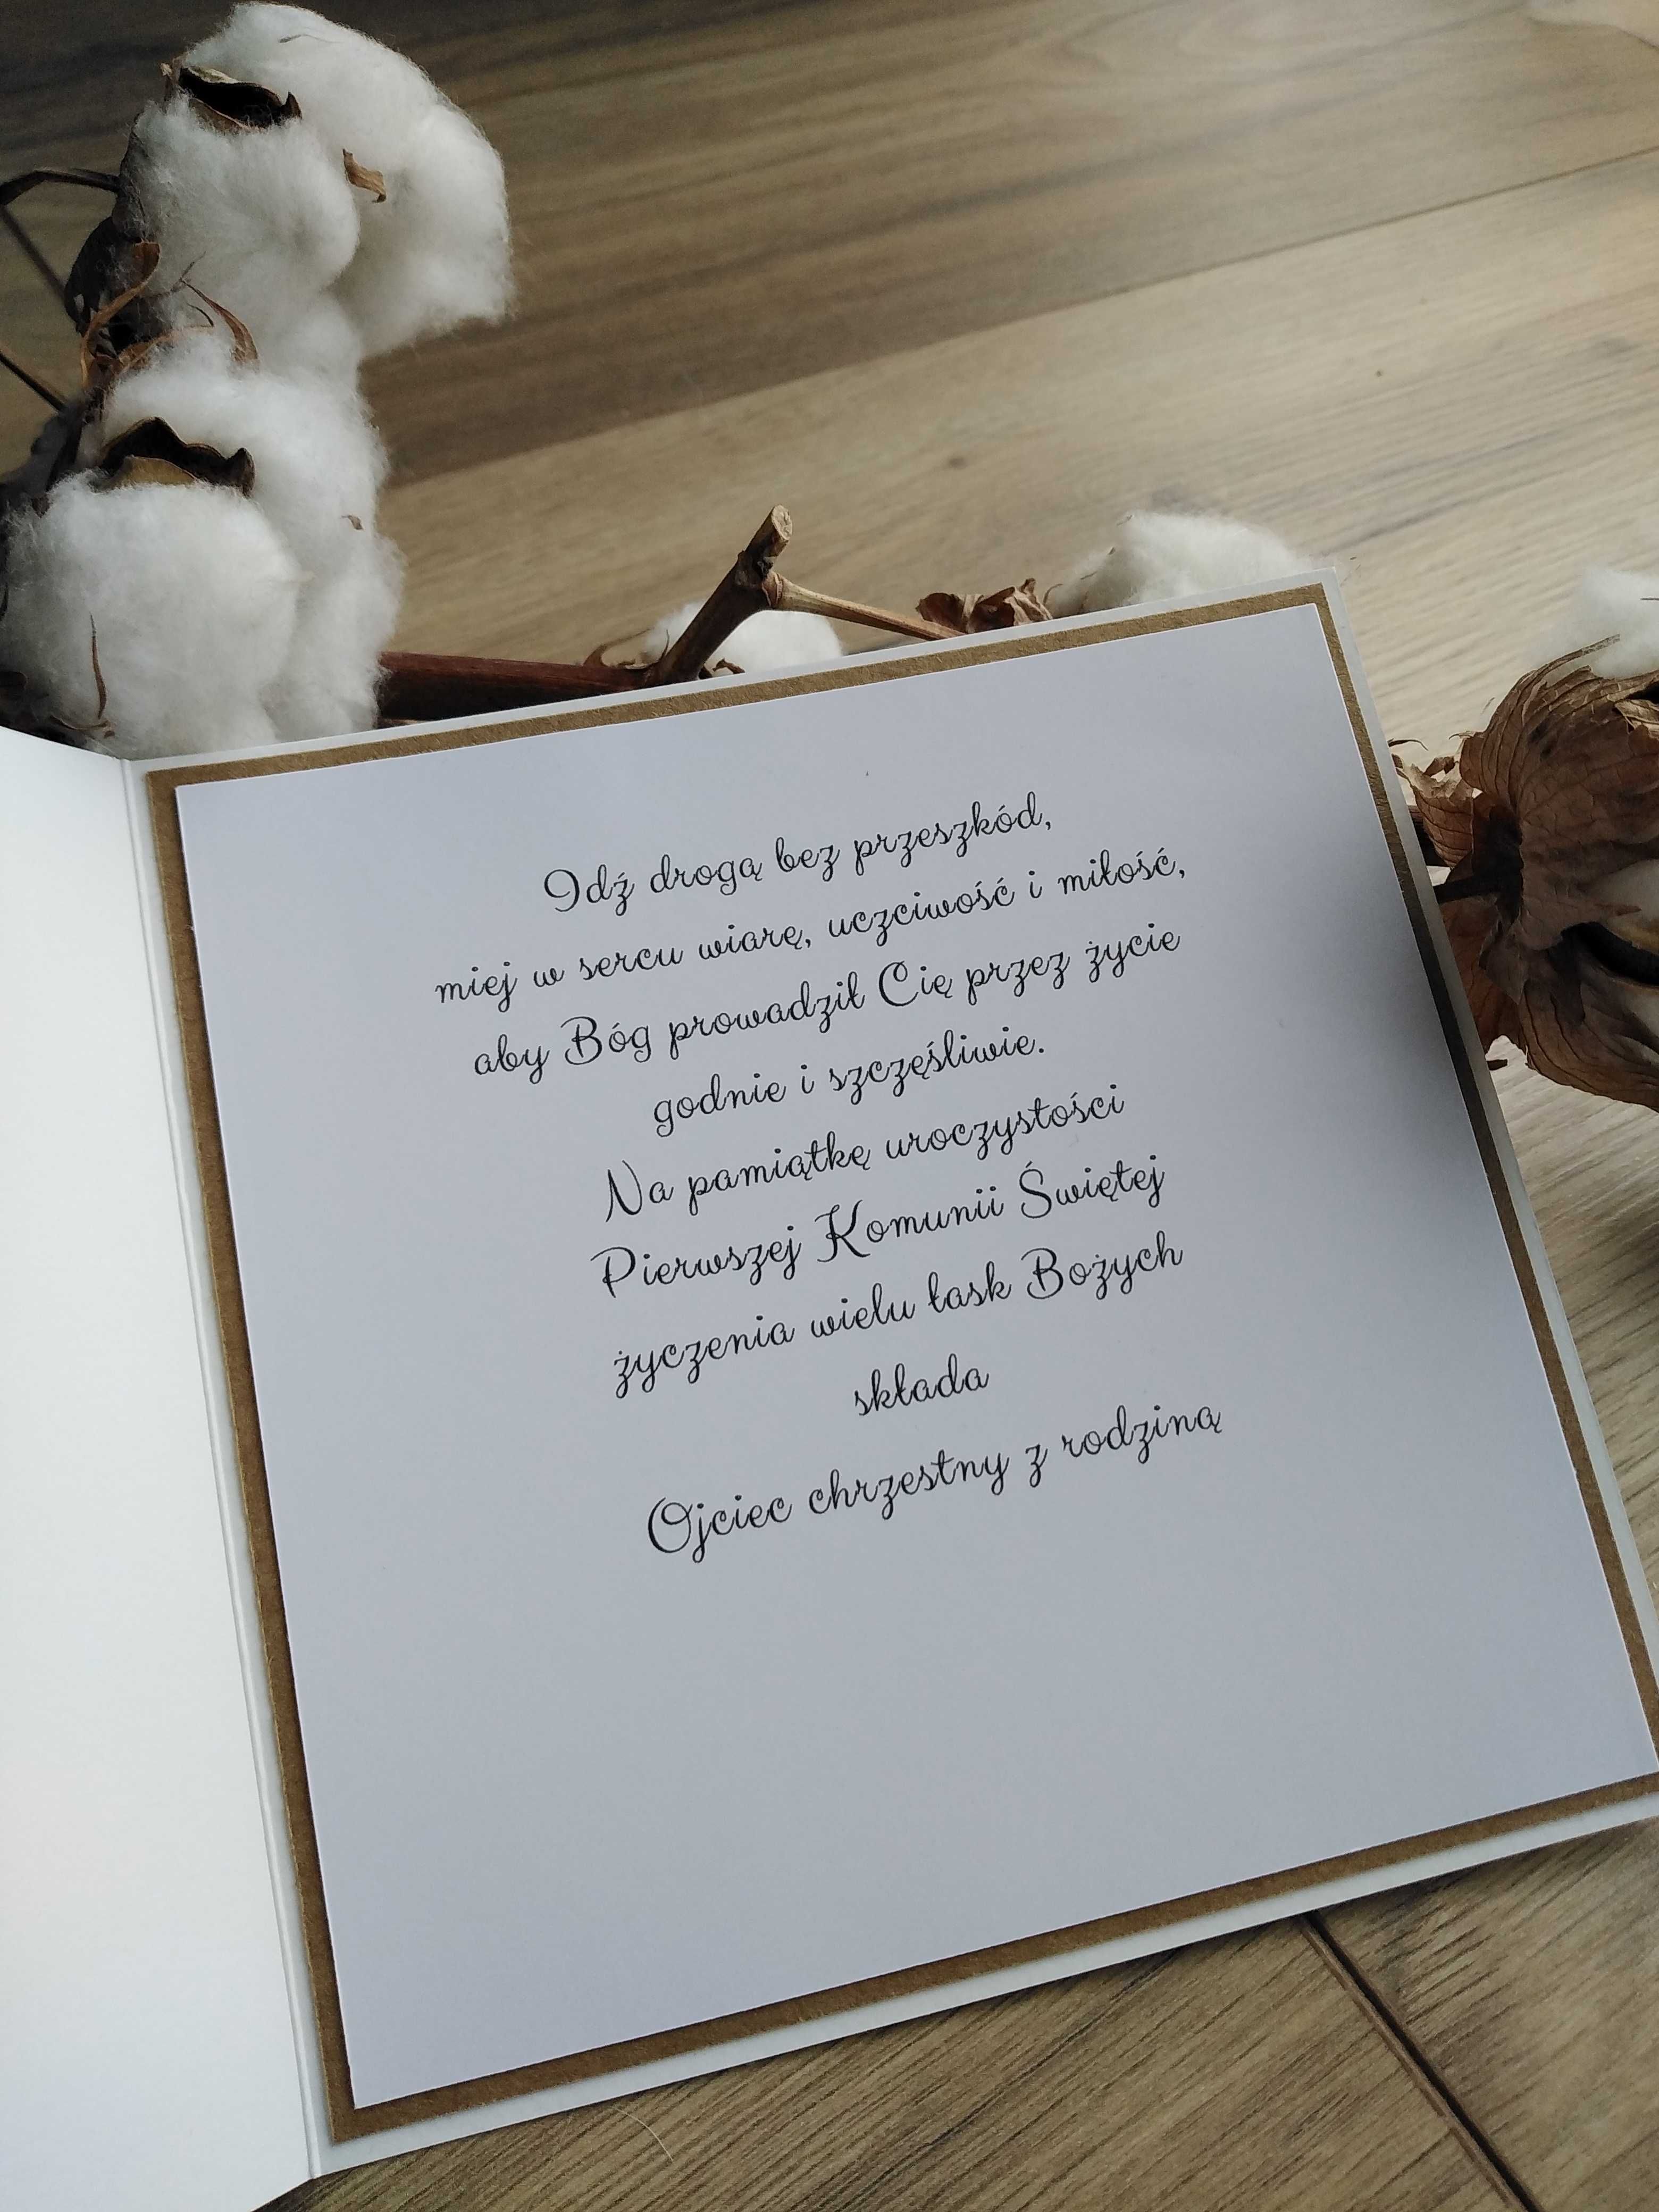 Idź drogą bez przeszkód,
miej w sercu wiarę, uczciwość i miłość,
aby Bóg prowadził Cię przez życie
godnie i szczęśliwie.
Na pamiątkę uroczystości
Pierwszej Komunii Świętej
życzenia wielu łask Bożych
składa
Ojciec chrzestny z rodziną